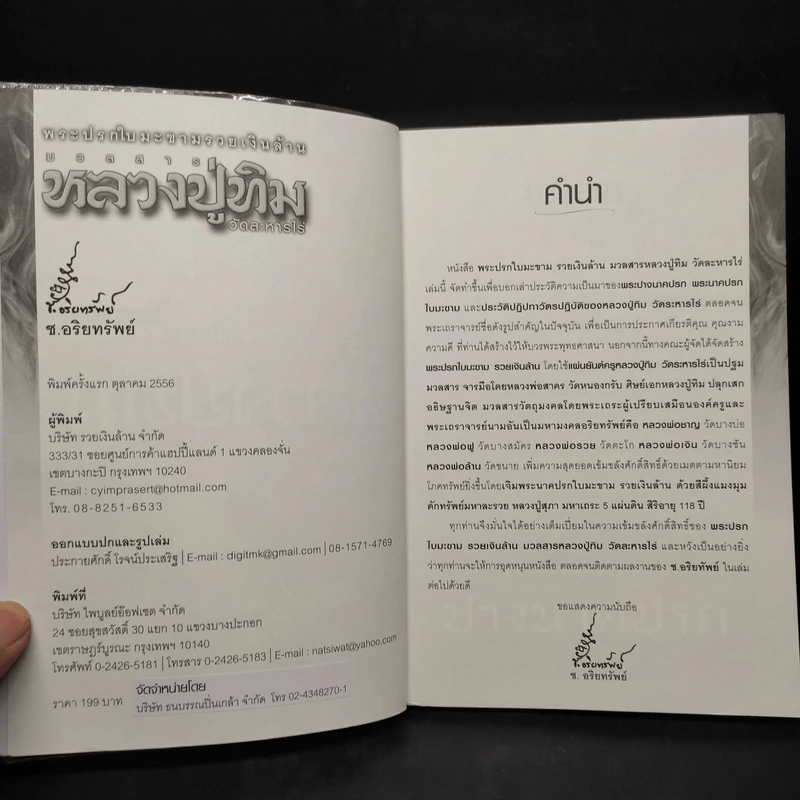 พระปรกใบมะขามรวยเงินล้าน
มวลสาร
หลวงปู่ทิม
วัดละหารไร่
ซ.อริยทรัพย์
ซ.อริยทรัพย์
พิมพ์ครั้งแรก ตุลาคม 2556
ผู้พิมพ์
บริษัท รวยเงินล้าน จำกัด
333/31 ซอยศูนย์การค้าแฮปปี้แลนด์ 1 แขวงคลองจั่น
เขตบางกะปิ กรุงเทพฯ 10240
E-mail : cyimprasert@hotmail.com
โทร. 08-8251-6533
ออกแบบปกและรูปเล่ม
ประกายศักดิ์ โรจน์ประเสริฐ | E-mail : digitmk@gmail.com | 08-1571-4769
พิมพ์ที่
บริษัท ไพบูลย์อ๊อฟเซต จำกัด
24 ซอยสุขสวัสดิ์ 30 แยก 10 แขวงบางปะกอก
เขตราษฎร์บูรณะ กรุงเทพฯ 10140
โทรศัพท์ 0-2426-5181 | โทรสาร 0-2426-5183 | E-mail : natsiwat@yahoo.com
ราคา 199 บาท
จัดจำหน่ายโดย
บริษัท ธนบรรณปิ่นเกล้า จำกัด โทร 02-4348270-1
คำนำ
หนังสือ พระปรกใบมะขาม รวยเงินล้าน มวลสารหลวงปู่ทิม วัดละหารไร่
เล่มนี้ จัดทำขึ้นเพื่อบอกเล่าประวัติความเป็นมาของพระปางนาคปรก พระนาคปรก
ใบมะขาม และประวัติปฏิปทาวัตรปฏิบัติของหลวงปู่ทิม วัดระหารไร่ ตลอดจน
พระเถราจารย์ชื่อดังรูปสำคัญในปัจจุบัน เพื่อเป็นการประกาศเกียรติคุณ คุณงาม
ความดี ที่ท่านได้สร้างไว้ให้บวรพระพุทธศาสนา นอกจากนี้ทางคณะผู้จัดได้จัดสร้าง
พระปรกใบมะขาม รวยเงินล้าน โดยใช้แผ่นยันต์ครูหลวงปู่ทิม วัดระหารไร่เป็นปฐม
มวลสาร จารมือโดยหลวงพ่อสาคร วัดหนองกรับ ศิษย์เอกหลวงปู่ทิม ปลุกเสก
อธิษฐานจิต มวลสารวัตถุมงคลโดยพระเถระผู้เปรียบเสมือนองค์ครูและ
พระเถราจารย์นามอันเป็นมหามงคลอริยทรัพย์คือ หลวงพ่อชาญ วัดบางบ่อ
หลวงพ่อฟู วัดบางสมัคร หลวงพ่อรวย วัดตะโก หลวงพ่อเงิน วัดบางชัน
หลวงพ่อล้าน วัดขนาย เพิ่มความสุดยอดเข้มขลังศักดิ์สิทธิ์ด้วยเมตตามหานิยม
โภคทรัพย์ยิ่งขึ้นโดยเจิมพระนาคปรกใบมะขาม รวยเงินล้าน ด้วยสีผึ้งแมงมุม
ดักทรัพย์มหาละรวย หลวงปู่สุภา มหาเถระ 5 แผ่นดิน สิริอายุ 118 ปี
ทุกท่านจึงมั่นใจได้อย่างเต็มเปี่ยมในความเข้มขลังศักดิ์สิทธิ์ของ พระปรก
ใบมะขาม รวยเงินล้าน มวลสารหลวงปู่ทิม วัดละหารไร่ และหวังเป็นอย่างยิ่ง
ว่าทุกท่านจะให้การอุดหนุนหนังสือ ตลอดจนติดตามผลงานของ ซ.อริยทรัพย์ ในเล่ม
ต่อไปด้วยดี
ขอแสดงความนับถือ
ซ.อริยทรัพย์
ซ. อริยทรัพย์